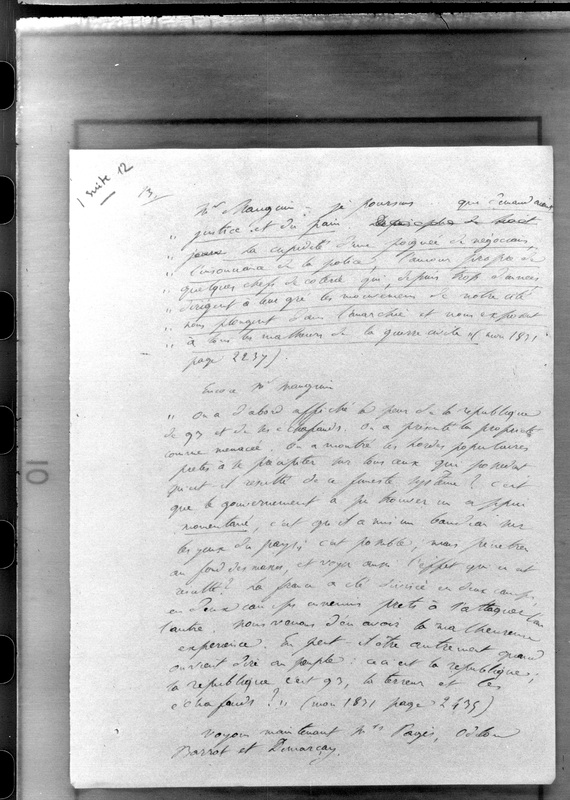 1 suite 12
Mr Mauguin - je poursuis que demandons
" justice et du pain
" la cupidité d'une poignée de négocians,
" l'insouciance de la police, l'amour propre de
quelques chefs de coterie qui, depuis trop d'années
" dirigent à leur gré les mouvemens de notre cité
" nous plongent dans l'anarchie et nous exposent
" à tous les malheurs de la guerre civile (mon 1831
page 2237).
Encore Mr Mauguin
" On a d'abord affiché la peur de la république
de 93 et du mot échafauds. On a présenté la propriété
comme menacée. On a montré les hordes populaires
prêtes à se précipiter sur tous ceux qui possèdent
qu'est il resulté de ce funeste système? c'est
que le gouvernement a pu trouver un appui
momentané, c'est qu'il a mis un bandeau sur
les yeux du pays; c'est possible, mais pénétrez
au fond des masses, et voyez aussi l'effet qui en est
resulté? la france a été divisée en deux camps,
en deux camps ennemis prêts à s'attaquer l'un
l'autre. Nous venons d'en avoir la malheureuse
experience. En peut il être autrement quand
on vient dire au peuple: ceci est la république;
la republique c'est 93, la terreur et les
échafauds? " (mon 1831 page 2435)
Voyons maintenant Mrs Pagès, Odilon
Barrot et Demarçay.
10